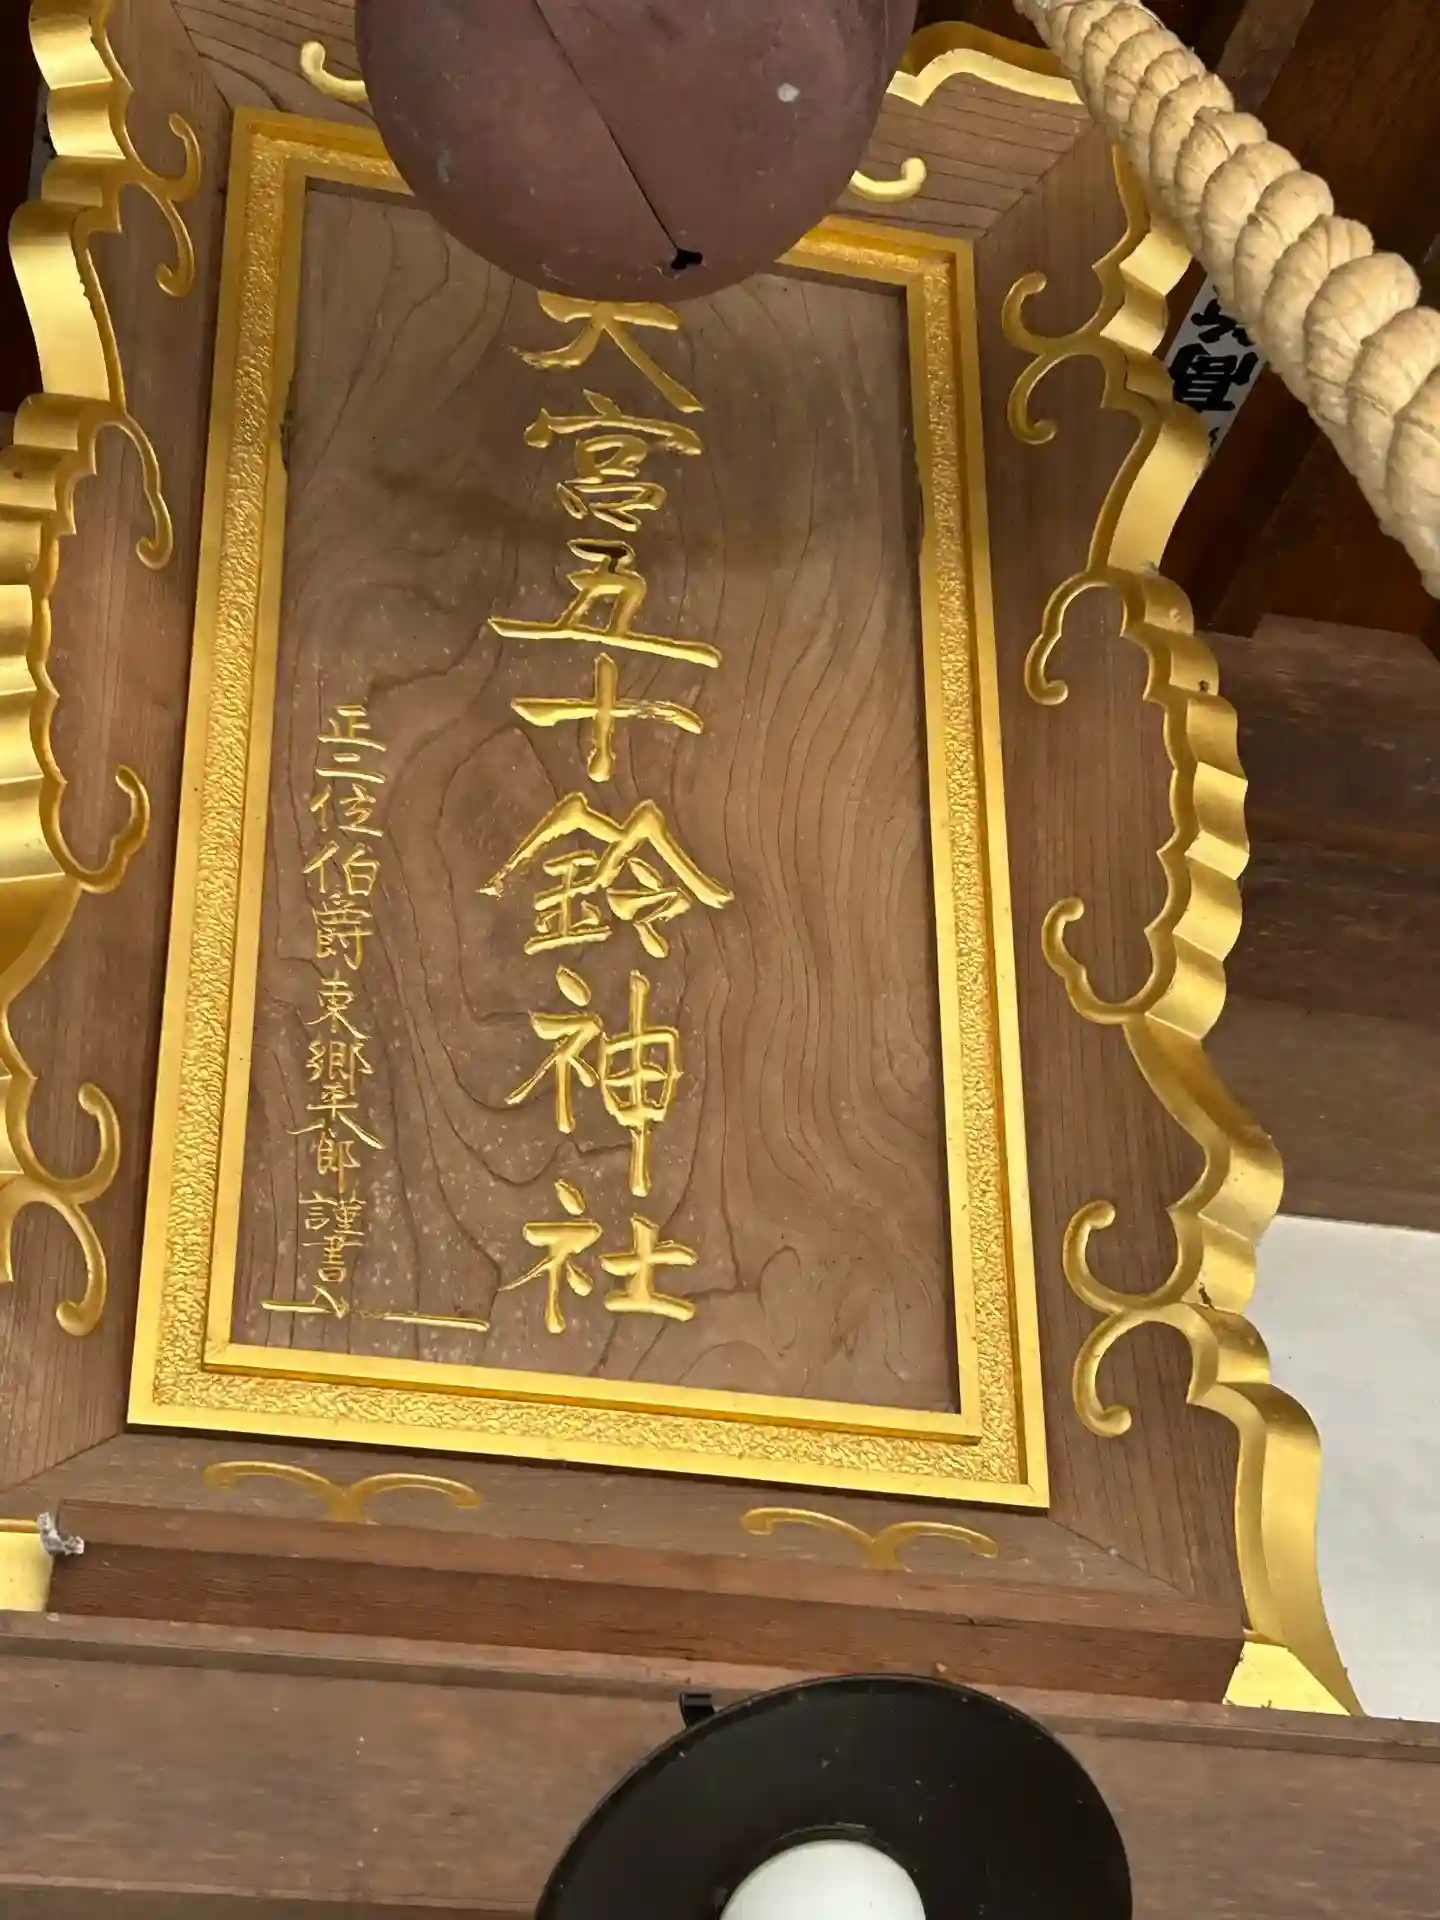 天宮五十鈴神社
正二位伯爵東郷平八郎謹書
高